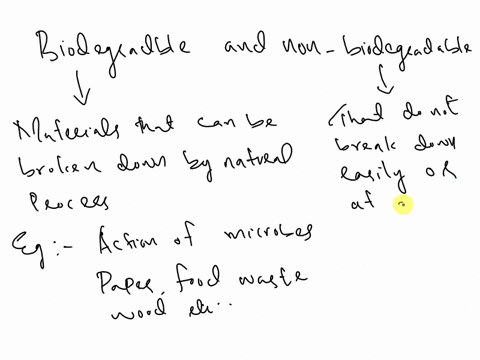 Biodegradble and non-biodegadable
Materials that can be
broken down by natural
Process
Eg:- Action of microbes
Paper, food waste
wood etc..
That do not
break down
easily OR
at